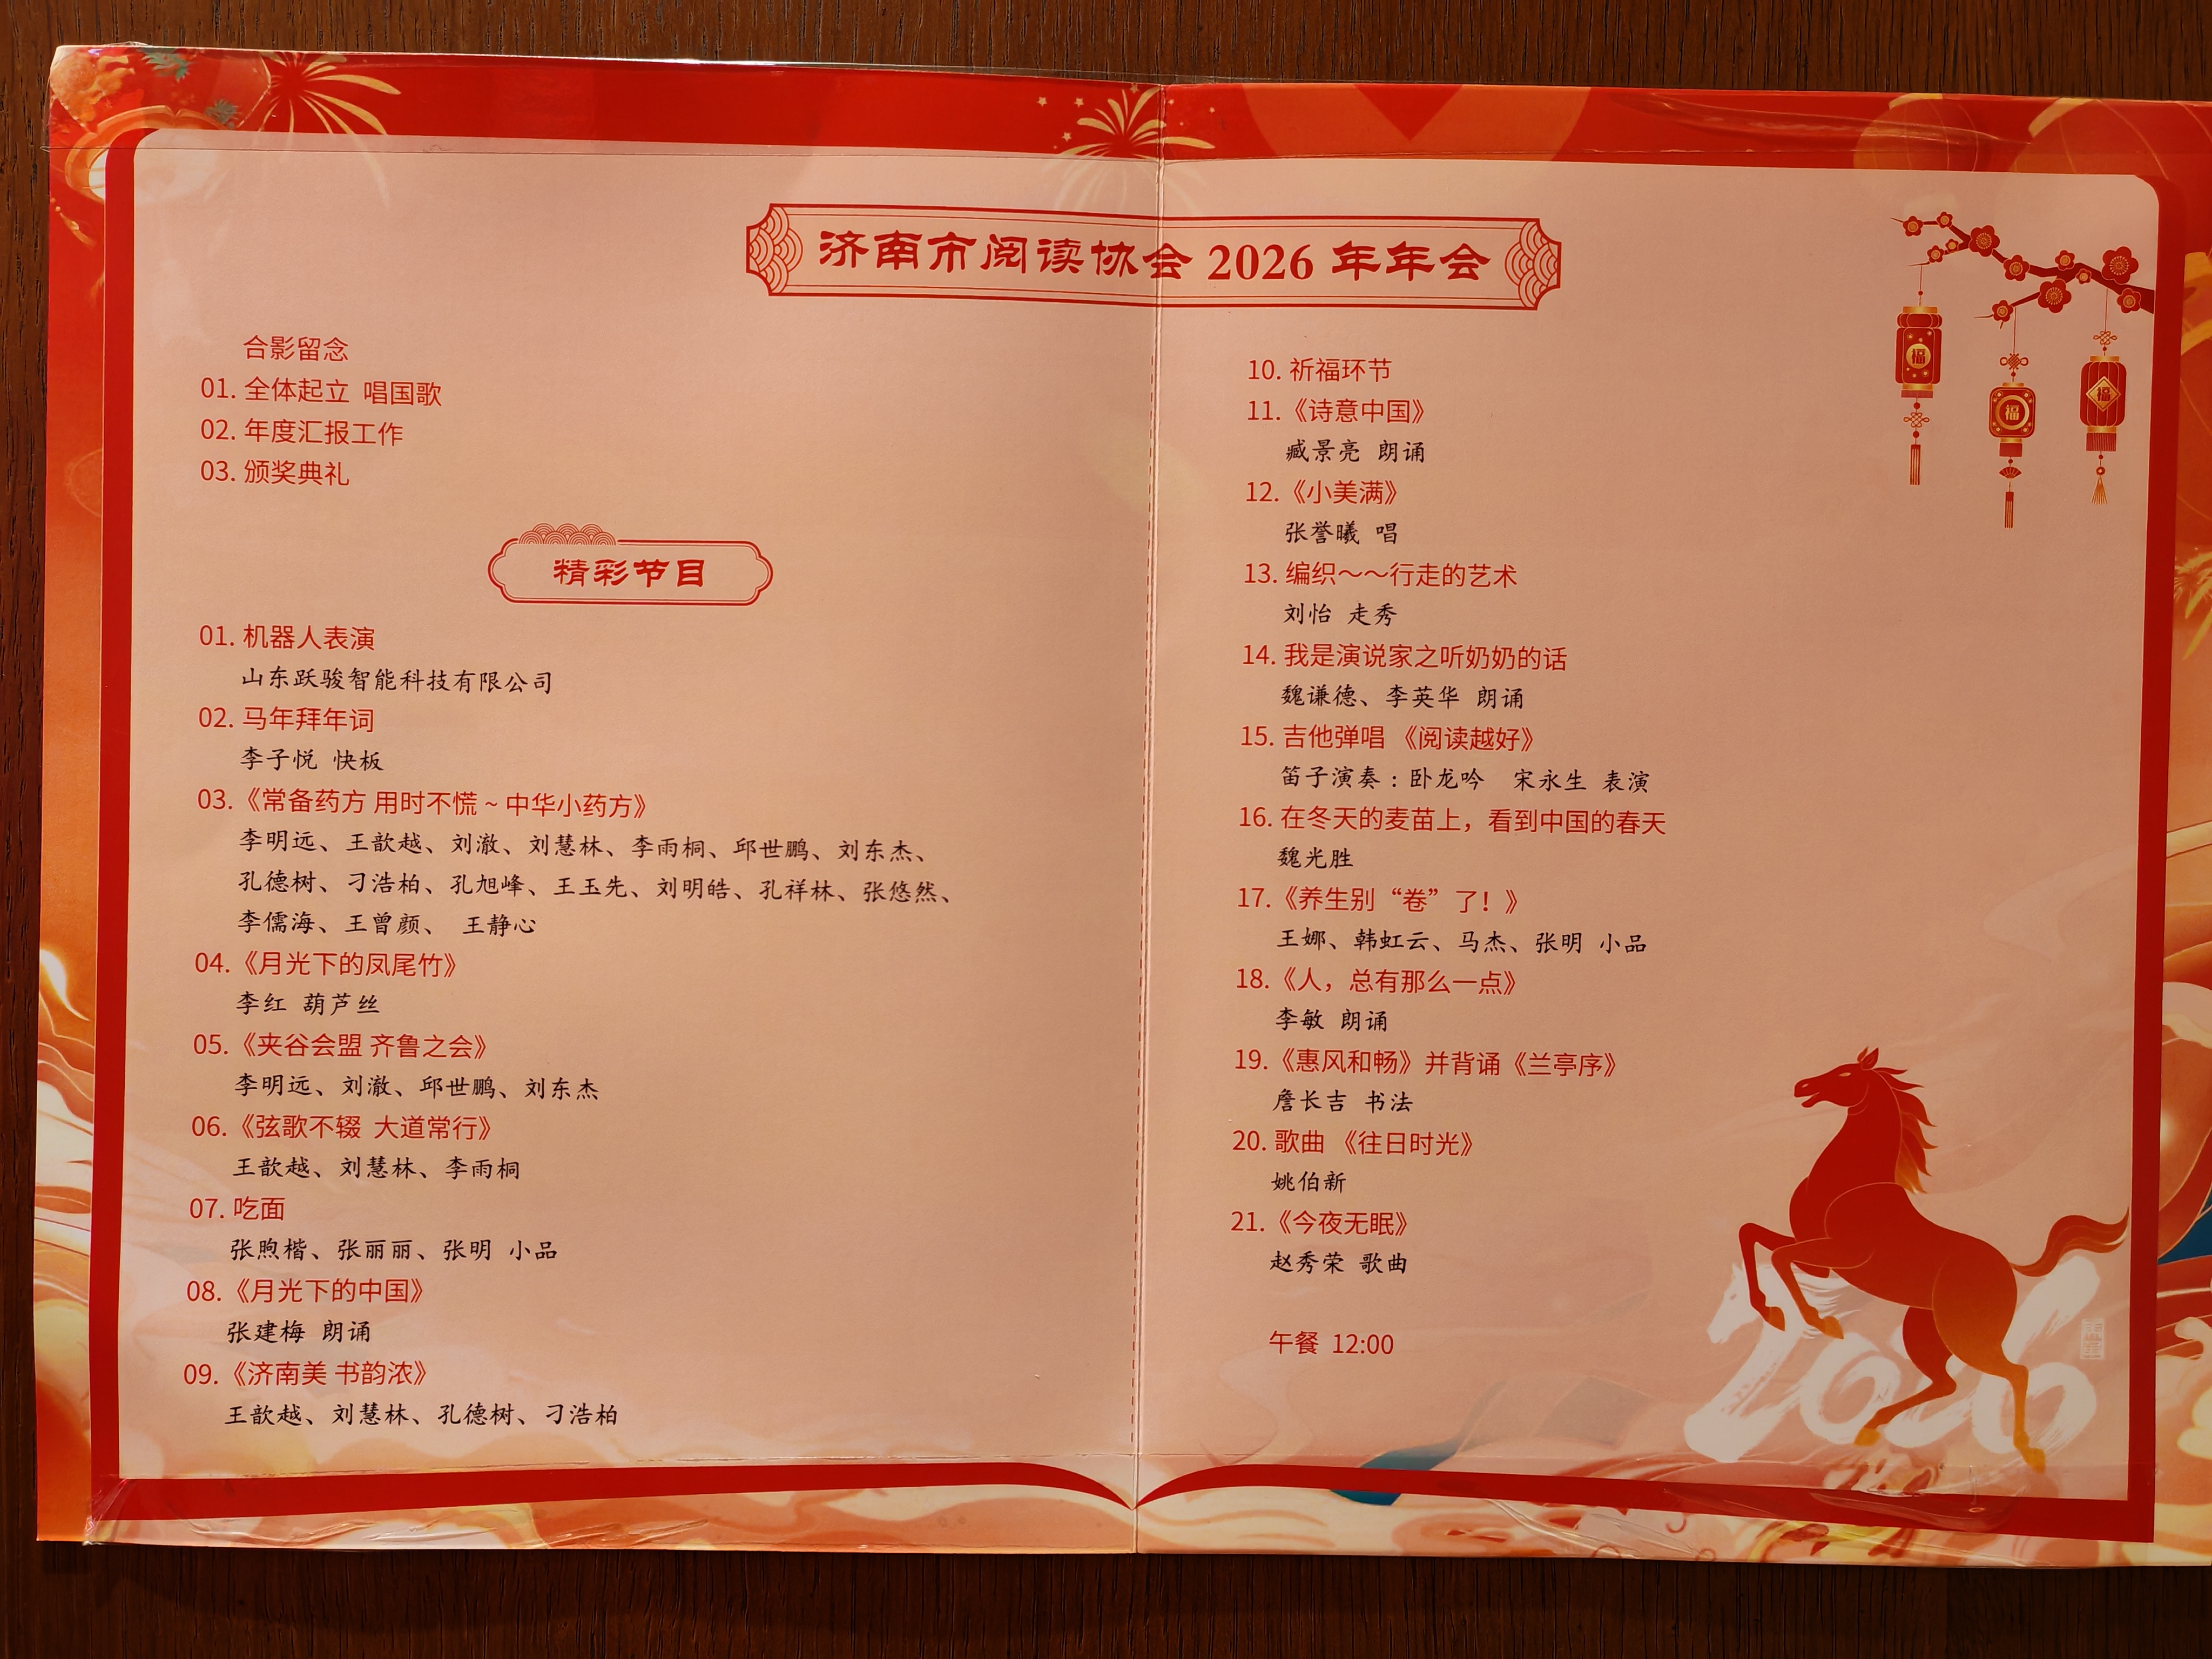 济南市阅读协会 2026 年年会
合影留念
01. 全体起立 唱国歌
02. 年度汇报工作
03. 颁奖典礼
精彩节目
01. 机器人表演
山东跃骏智能科技有限公司
02. 马年拜年词
李子悦 快板
03.《常备药方 用时不慌 ~ 中华小药方》
李明远、王歆越、刘澈、刘慧林、李雨桐、邱世鹏、刘东杰、
孔德树、刁浩柏、孔旭峰、王玉先、刘明皓、孔祥林、张悠然、
李儒海、王曾颜、 王静心
04.《月光下的凤尾竹》
李红 葫芦丝
05.《夹谷会盟 齐鲁之会》
李明远、刘澈、邱世鹏、刘东杰
06.《弦歌不辍 大道常行》
王歆越、刘慧林、李雨桐
07. 吃面
张煦楷、张丽丽、张明 小品
08.《月光下的中国》
张建梅 朗诵
09.《济南美 书韵浓》
王歆越、刘慧林、孔德树、刁浩柏
10. 祈福环节
11.《诗意中国》
臧景亮 朗诵
12.《小美满》
张誉曦 唱
13. 编织～～行走的艺术
刘怡 走秀
14. 我是演说家之听奶奶的话
魏谦德、李英华 朗诵
15. 吉他弹唱 《阅读越好》
笛子演奏：卧龙吟 宋永生 表演
16. 在冬天的麦苗上，看到中国的春天
魏光胜
17.《养生别“卷”了！》
王娜、韩虹云、马杰、张明 小品
18.《人，总有那么一点》
李敏 朗诵
19.《惠风和畅》并背诵《兰亭序》
詹长吉 书法
20. 歌曲 《往日时光》
姚伯新
21.《今夜无眠》
赵秀荣 歌曲
午餐 12:00
福
福
福
2026